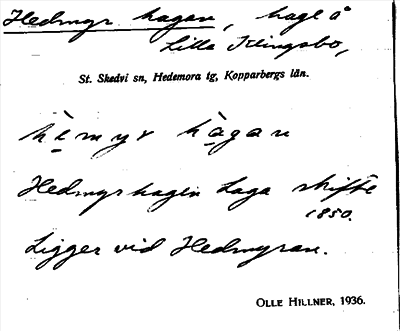 Hedmyr hagan, hage å
Lilla Klingsbo,
St. Skedvi sn, Hedemora tg, Kopparbergs län.
hèmyr hàgan
Hedmyrhagen Laga skifte
1850.
Ligger vid Hedmyran.
OLLE HILLNER, 1936.